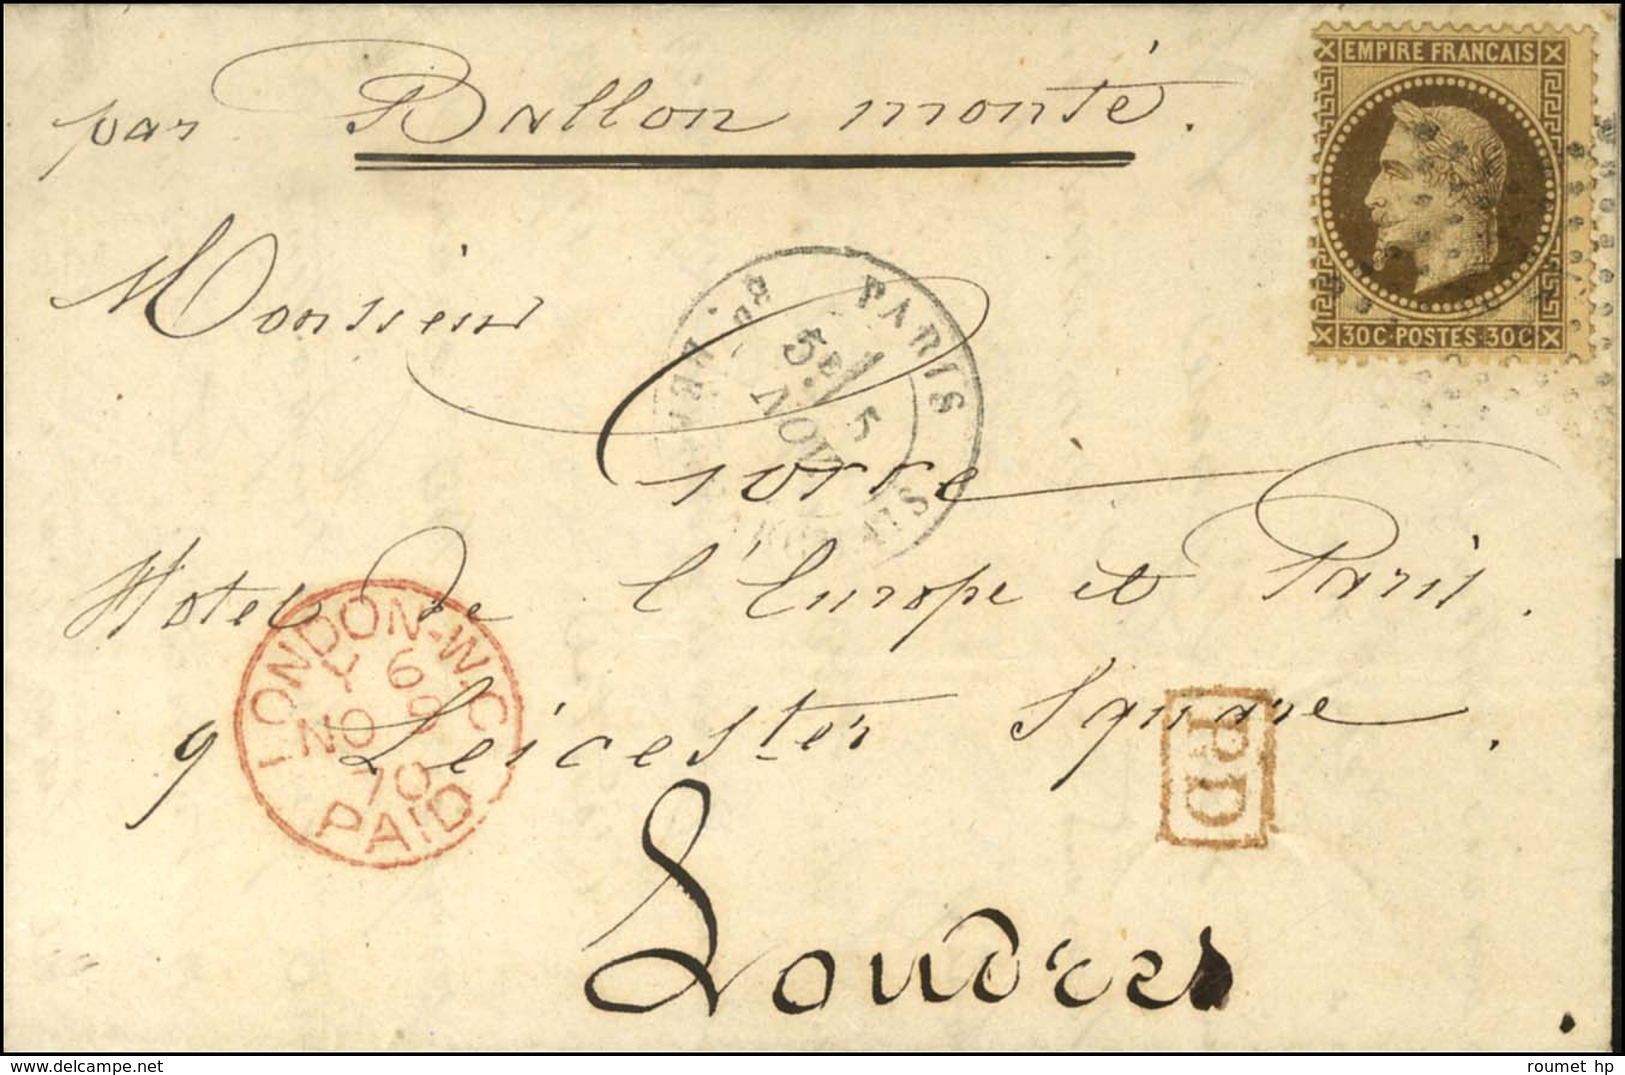 EMPIRE FRANCAIS
30C·POSTES·30C
par Ballon monté.
Monsieur
PARIS
5E
5
NOV
Hotel de l'Europe et Paris.
9 Leicester Square.
Londres
LONDON-W.C
Y 6
NO
70
PAID
P.D
delcampe.net
roumet hp